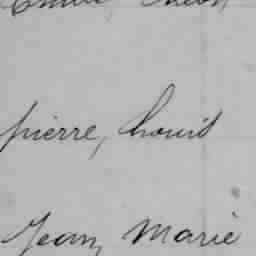 pierre, Louis
Jean, Marie